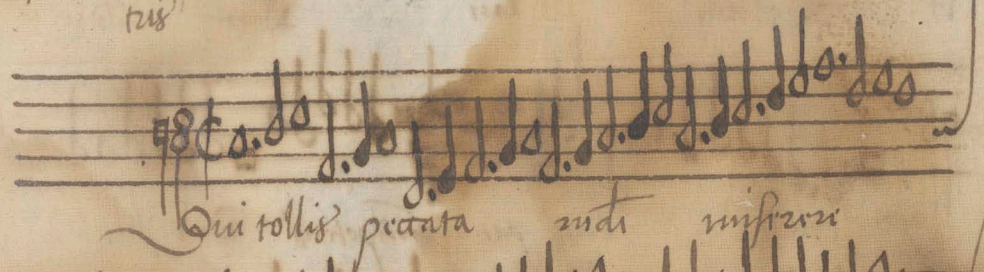 tris
Qui tollis peccata mūdi miserere